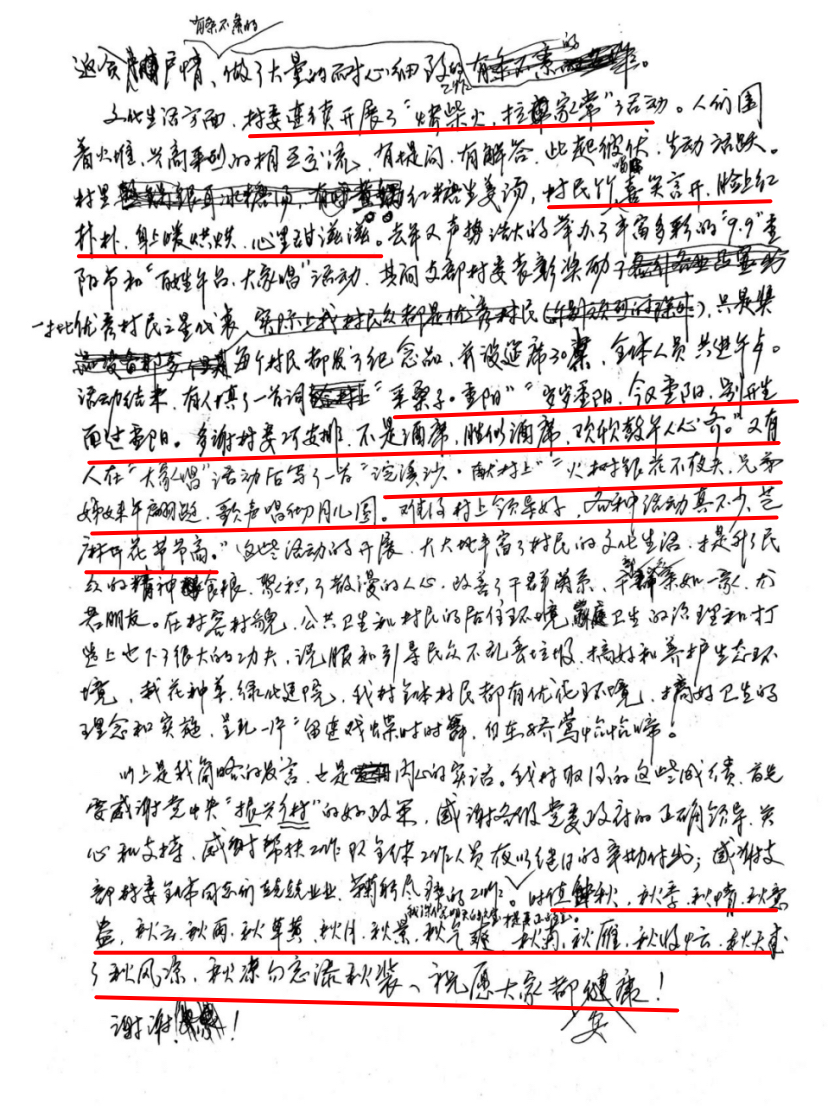 有条不紊的
做了大量的耐心细致的
工作。
文化生活方面，村委连续开展了“烤柴火，拉家常”活动。人们围
着火堆，兴高采烈的相互交流，有提问，有解答，此起彼伏，生动活跃。
村里红糖生姜汤，村民竹喜笑言开，脸上红
扑扑，身上暖烘烘，心里甜滋滋。去年又声势浩大的举办了丰富多彩的“9.9”重
阳节和“百姓午台，大家唱”活动，共同支部村委表彰奖励了
一批优秀村民之星代表，只是奖
每个村民都发了纪念品，并设筵席30桌，全体人员共进午歺。
活动结束，有人填了一首词“采桑子·重阳”“岁岁重阳，今又重阳，别开生
面过重阳。多谢村委巧安排，不是酒席，胜似酒席，欢欣鼓午人心齐。”又有
人在“大家唱”活动后写了一首“浣溪沙·献村上”“火树银花不夜天，兄弟
姊妹午翩跹，歌声唱彻月儿圆。难得村上领导好，各种活动真不少，芝
麻开花节节高。”这些活动的开展，大大地丰富了村民的文化生活，提升了民
众的精神食粮，聚积了散漫的人心，改善了干群关系，干群亲如一家，尤
若朋友。在村容村貌，公共卫生和村民的居住环境卫生的治理和打
造上也下了很大的功夫，说服和引导民众不乱丢垃圾，搞好和养护生态环
境，栽花种草，绿化庭院，我村全体村民都有优化环境，搞好卫生的
理念和实施，呈现一片“留连戏蝶时时舞，自在娇莺恰恰啼。
以上是我简略的发言，也是内心的实话。我村取得的这些成绩，首先
要感谢党中央“振兴乡村”的好政策，感谢各级党委政府的正确领导、关
心和支持，感谢帮扶工作队全体工作人员夜以继日的辛勤付出；感谢支
部村委全体同志们兢兢业业，的工作。时值秋，秋季，秋晴，秋意
盎，秋云，秋雨，秋草黄，秋月，秋景，秋气爽，秋菊，秋雁，秋收忙，秋天
了秋风凉，秋凉勿忘添秋装、祝愿大家都健康！
安
谢谢！